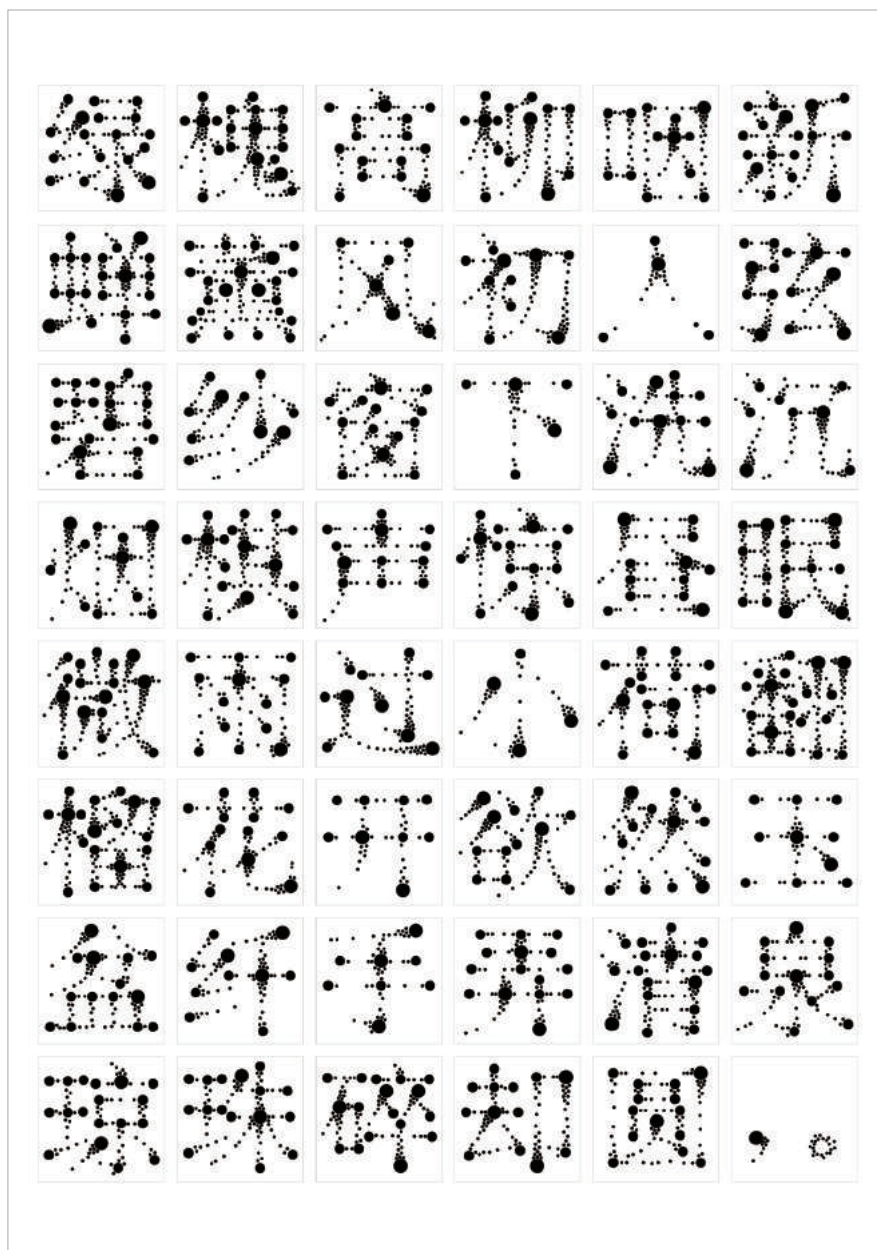 绿槐高柳咽新
蝉薰风初入弦
碧纱窗下洗沉
烟棋声惊昼眠
微雨过小荷翻
榴花开欲然玉
盆纤手弄清泉
琼珠碎却圆，。